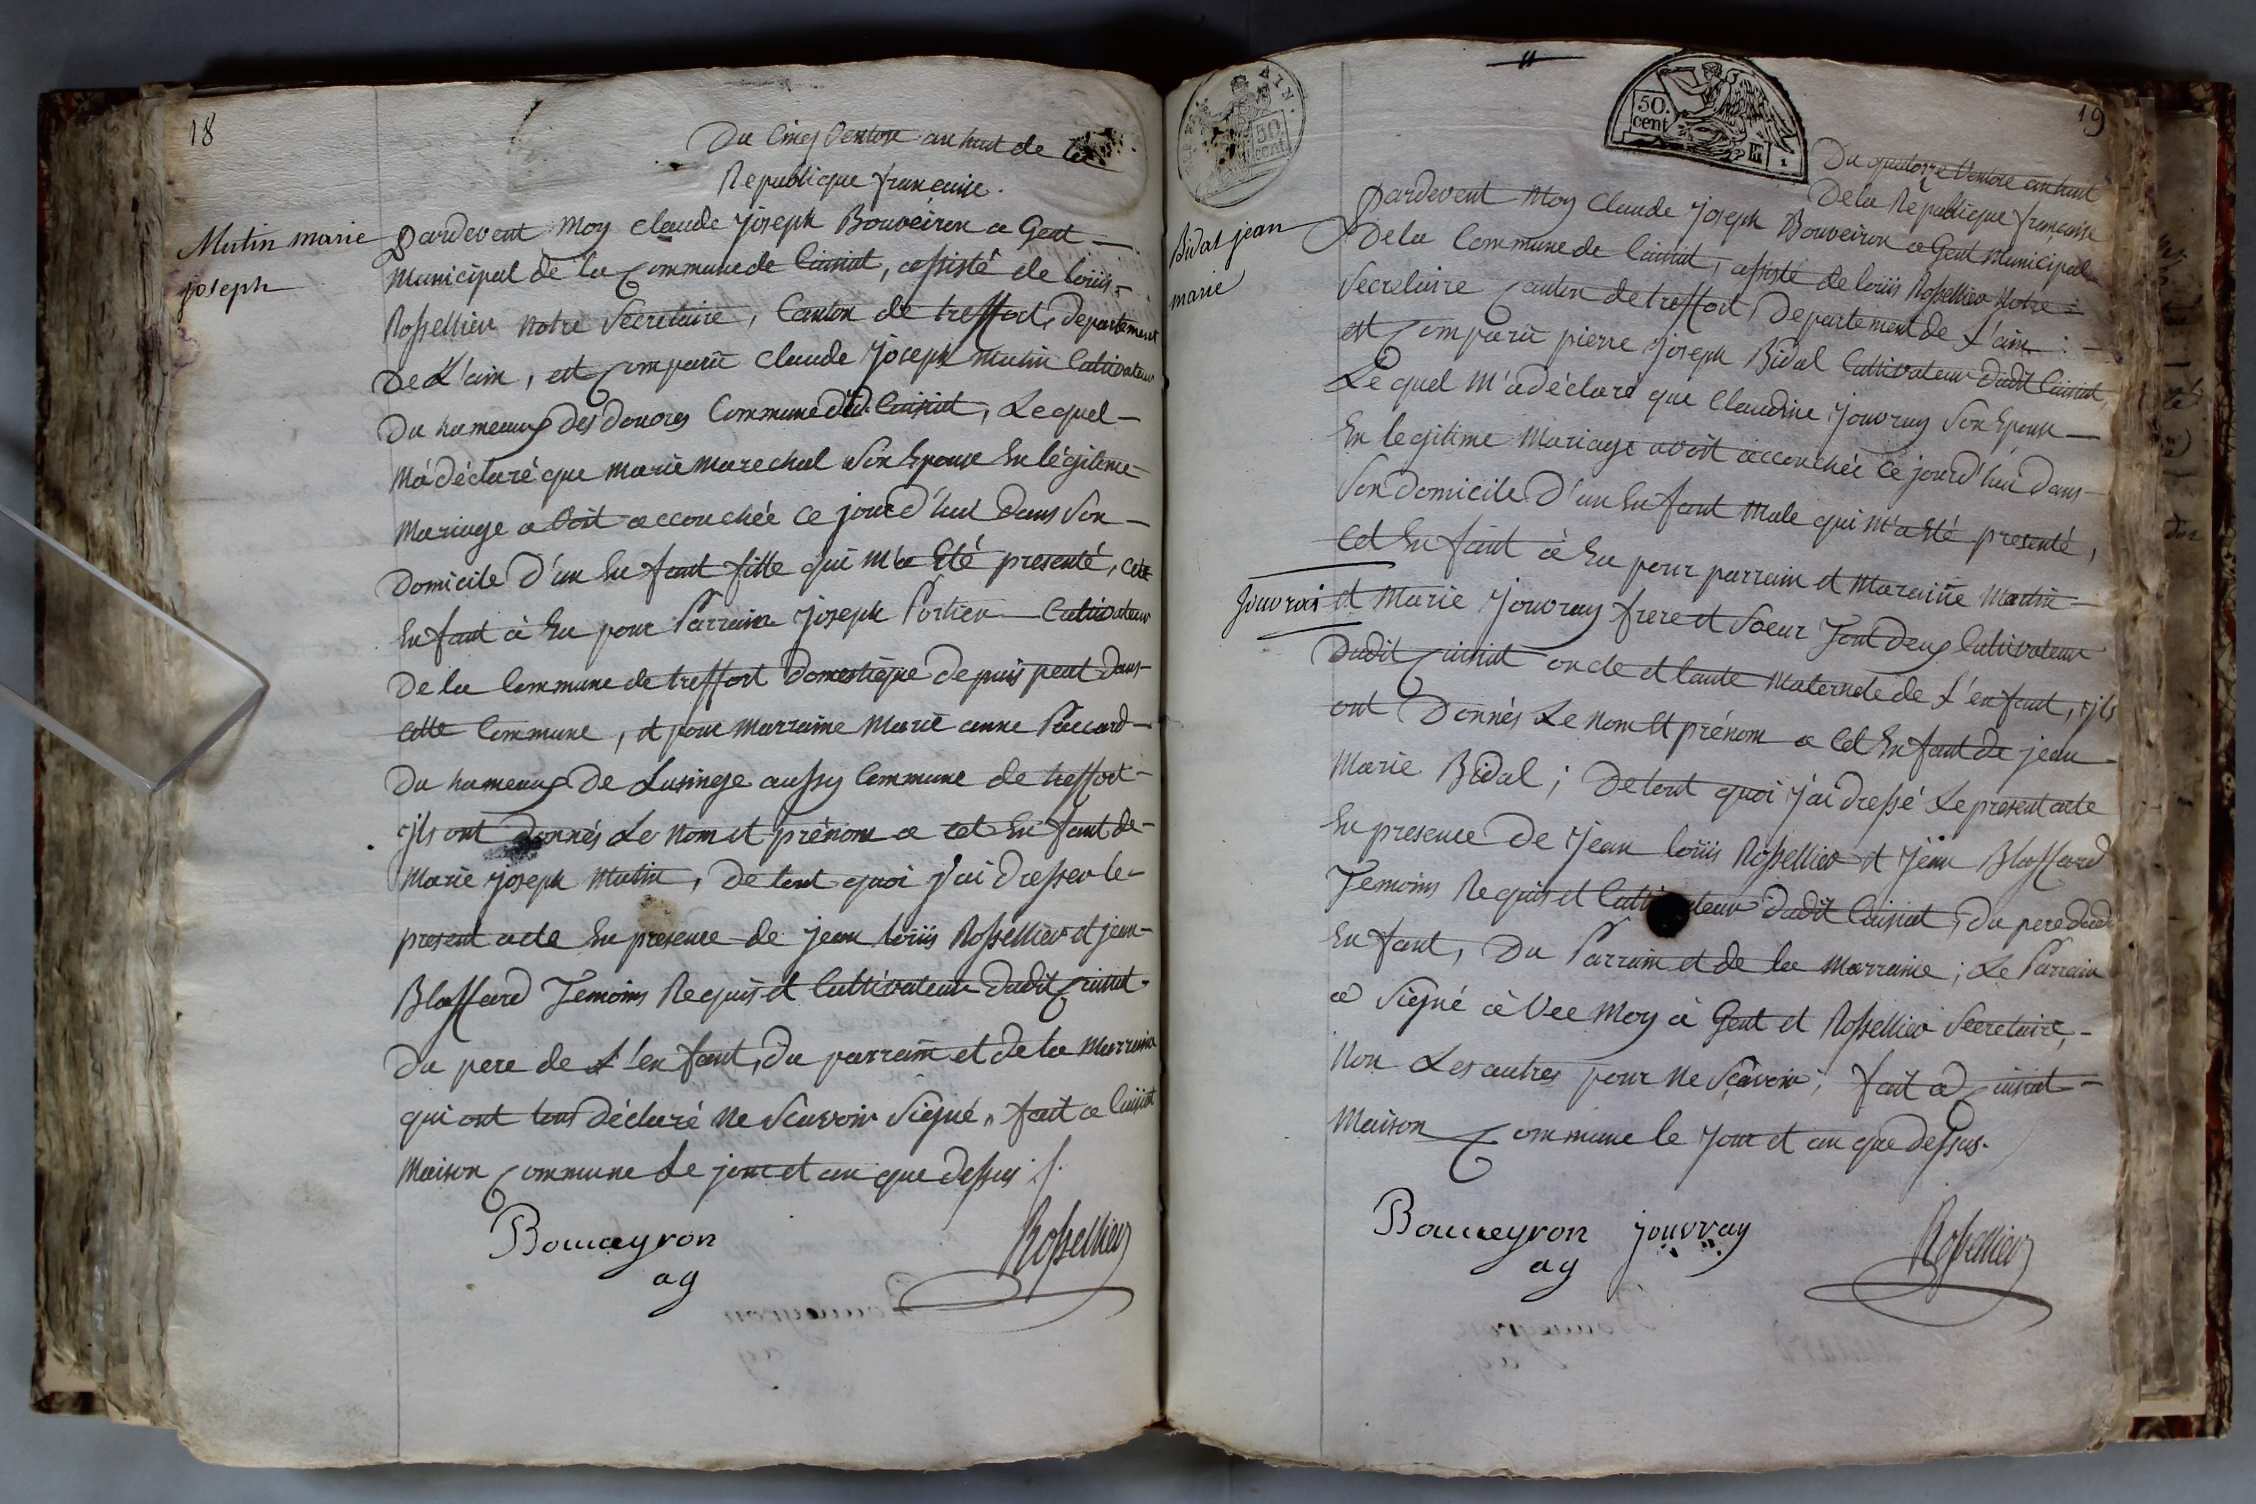 18
Du Cinq Ventose an huit de la
Republique françaisse.
Mutin marie
joseph
Pardevent Moy Claude Joseph Bouveiron a Gent
Municipal de la Commune de Cuisiat, assisté de loüis
Rossellier Notre Secretaire, Canton de treffort, departement
De L'ain, est Comparü Claude Joseph Mutin Cultivateur
Du hameaux des donores Commune dud. Cuisiat, Lequel
M'a déclaré que Marie Marechal Son Epouse En légitime
Mariage a Voit accouchée Ce jourd'hui Dans Son
Domicile D'un Enfant fille qui M'a Eté presenté, Cet
Enfant à Eu pour Parrain Joseph Portier Cultivateur
De la Commune de treffort Domestique Depuis peut Dans
Cette Commune, et pour Marraine Marie anne Paccard
Du hameaux De Lusinge aussy Commune de treffort
ils ont donnés Le Nom et prénom a cet Enfant de
Marie Joseph Mutin, De tout quoi j'ai Dresser le
present acte En presence de Jean loüis Rossellier et jean
Blassard Temoins Requis et Cultivateur Dudit Cuisiat.
Du pere de L'enfant, Du parrain et de la Marraine
qui ont tous Déclaré Ne Scavoir Signé, fait a Cuisiat
Maison Commune Le jour et an que Dessus ./.
Bouveyron
ag
Rossellier
19
50.
cent
AIN.
50
cent
Du quatorze Ventose an huit
De la Republique française
Bidal jean
marie
Pardevent Moy Claude Joseph Bouveiron a Gent Municipal
De la Commune de Cuisiat, assisté de loüis Rossellier Notre
Secretaire Canton de treffort, Departement de L'ain
est Comparü pierre Joseph Bidal Cultivateur Dudit Cuisiat,
Le quel M'a déclaré que Claudine Jouvray Son Epouse
En legitime Mariage avoit accouchée Ce jourd'hui Dans
Son Domicile D'un Enfant Male qui M'a Eté presenté,
Cet Enfant à Eu pour parrain et Maraine Martin
Jouvrai
et Marie Jouvray frere et Soeur Tout Deux Cultivateur
Dudit Cuisiat oncle et tante Maternele de L'enfant, ils
ont Donnés Le Nom Et prénom a Cet Enfant de jean
Marie Bidal ; De tout quoi j'ai Dressé Le present acte
En presence De Jean loüis Rossellier et Jean Blassard
Temoins Requis et Cultivateur Dudit Cuisiat, Du pere dud.
Enfant, Du Parrain et de la Marraine ; Le Parrain
a Signé à Vec Moy a Gent et Rossellier Secretaire,
Non Les autres pour Ne Scavoir ; fait a Cuisiat
Maison Commune le Jour et an que Dessus.
Bouveyron
ag
jouvray
Rossellier